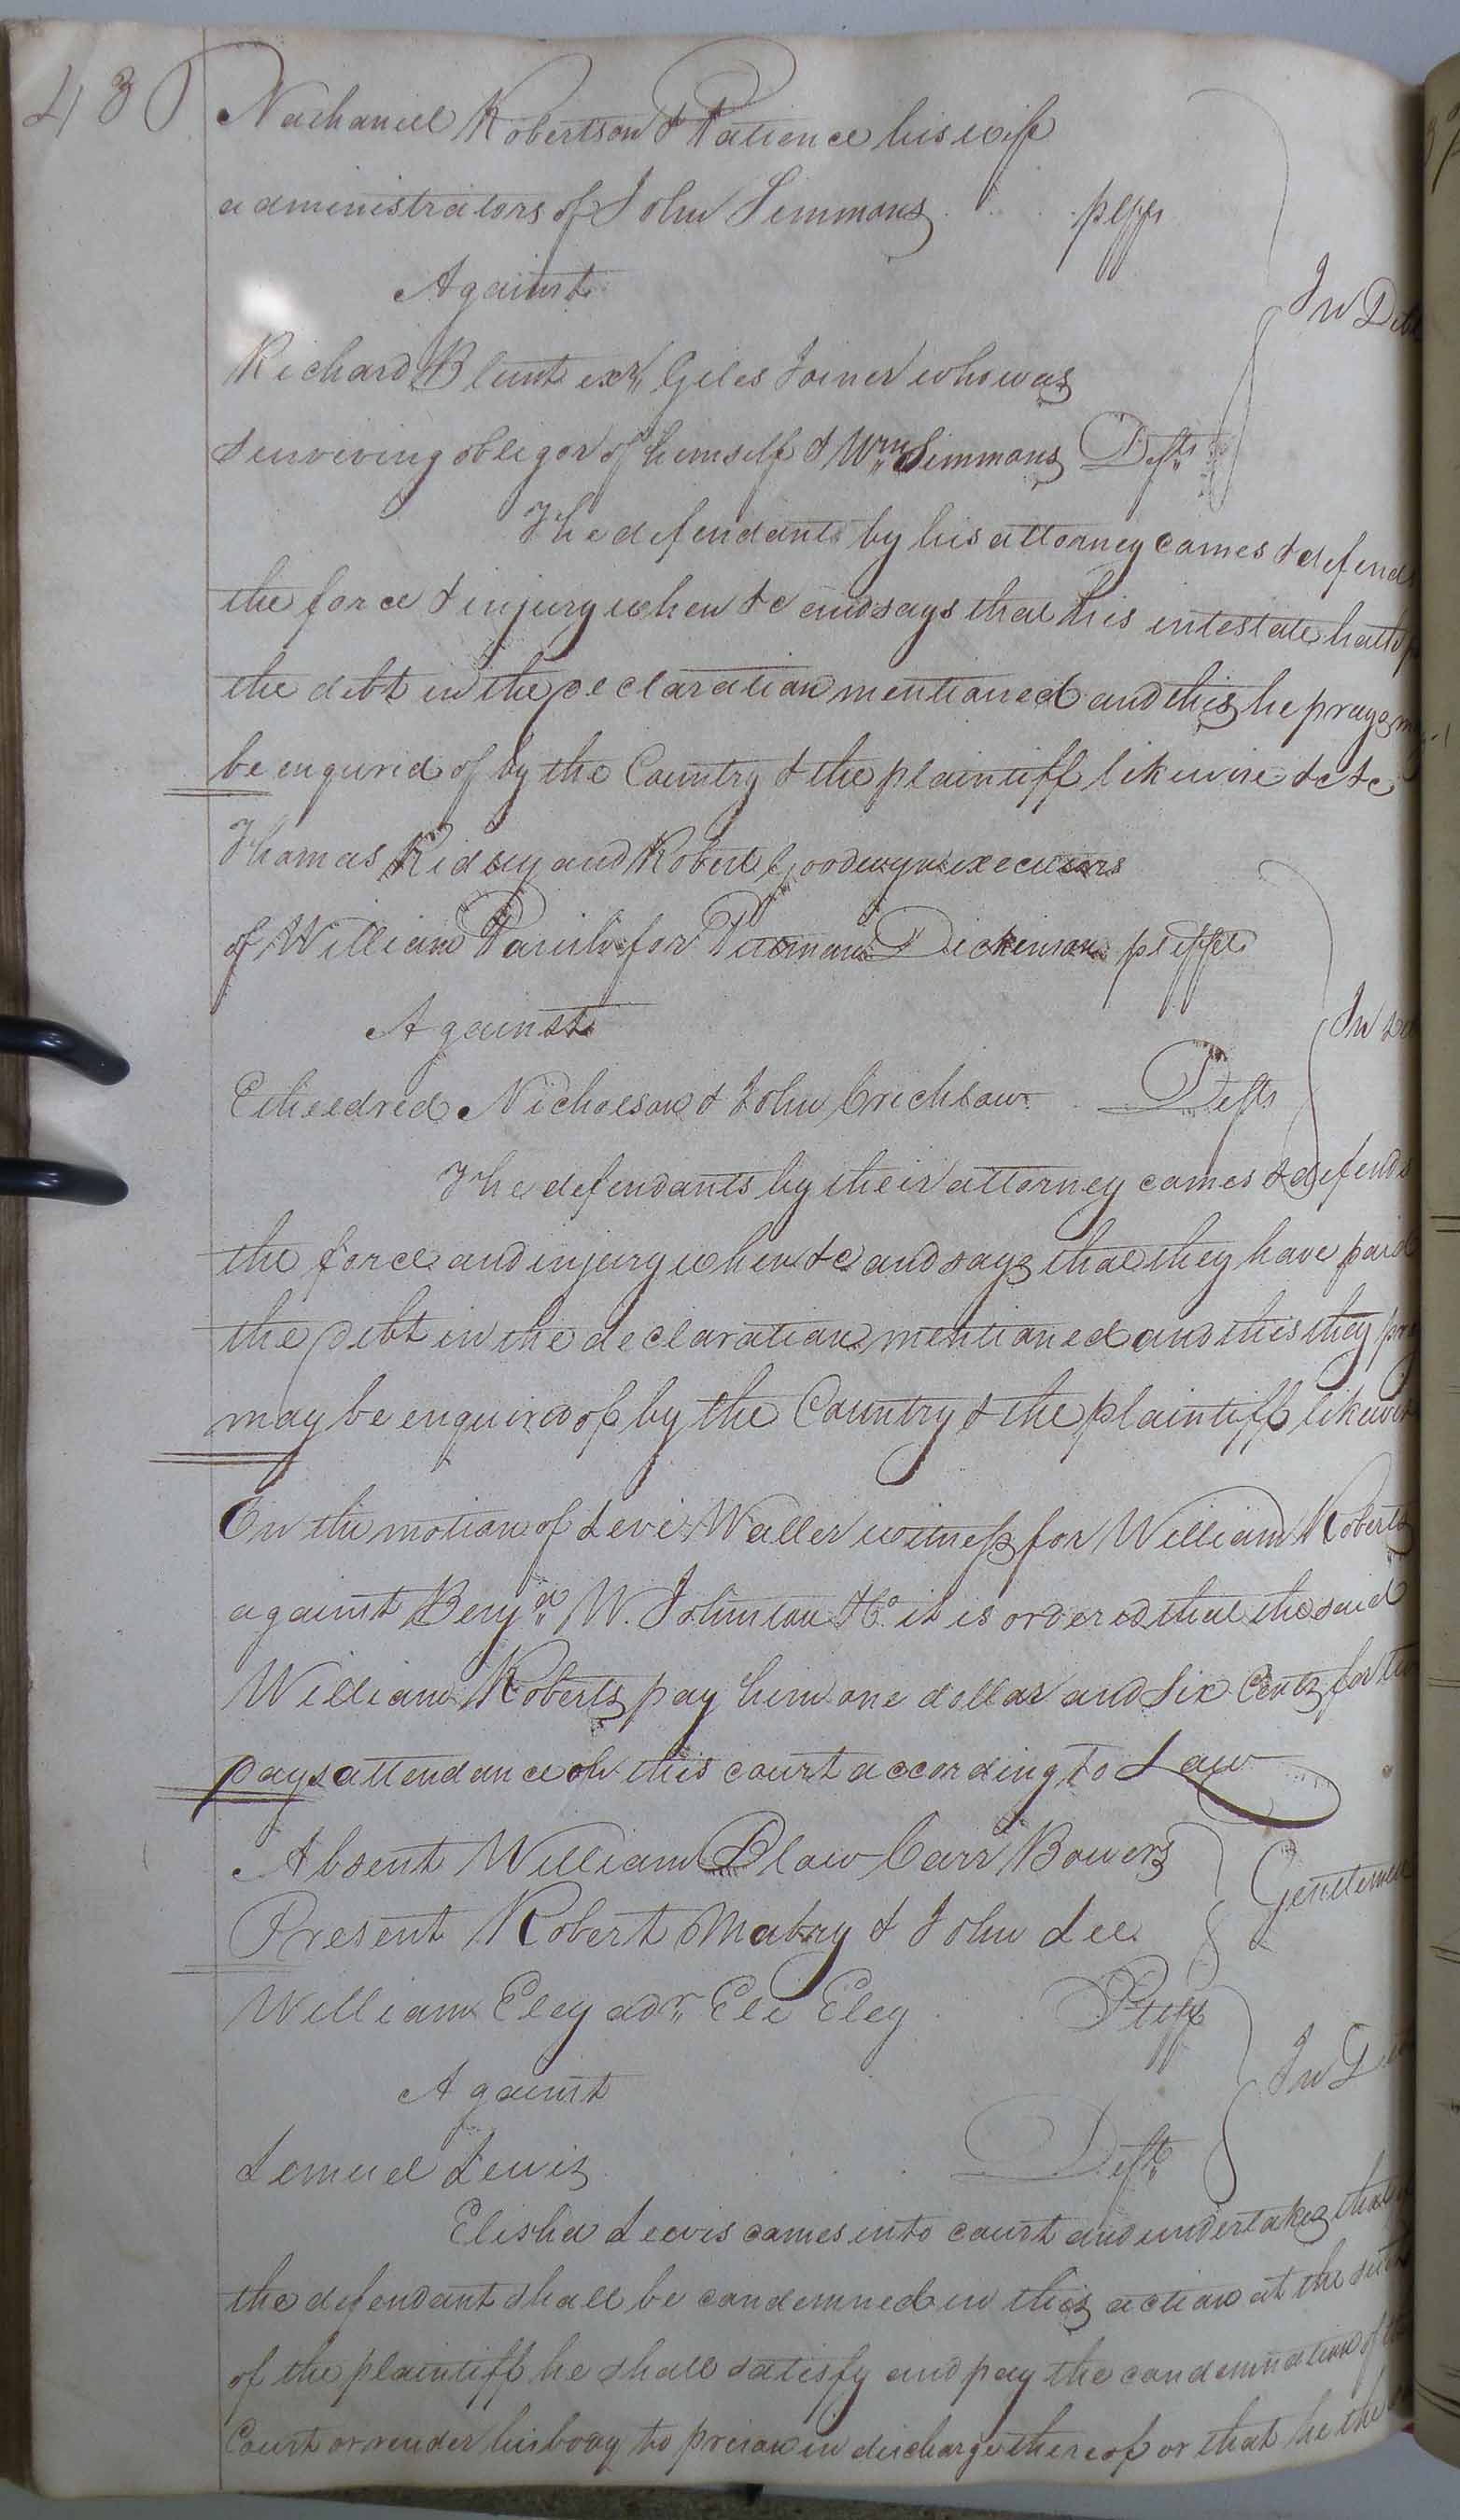 430
Nathaniel Robertson & Patience his wife
administrators of John Simmons plffs
Against
In Deb
Richard Blunt exr Giles Joiner who was
surviving obligor of himself & Wm Simmons Defts
The defendants by his attorney comes & defends
the force & injury when &c and says that his intestate hath
the debt in the declaration mentioned and this he prays
be enquried of by the Country & the plaintiff likewise &c &c
Thomas Ridley and Robert Goodwyn executors
of William for Dickinson plffs
Against
In
Etheldred Nicholson & John Crichlow Defts
The defendants by their attorney comes & defends
the force and injury when &c and says that they have paid
the debt in the declaration mentioned and this they
may be enquired of by the Country & the plaintiff likewise
On the motion of Levi Waller witness for William Roberts
against Benjn W. Johnson &Co it is ordered that the said
William Roberts pay him one dollar and six Cents for
days attendance on this court according to Law
Absent William Blow Carr Bowers
Gentlemen
Present Robert Mabry & John Lee
William Eley adr Eli Eley Plff
Against
In
Lemuel Lewis Deft
Elisha Lewis comes into court and undertakes that
the defendant shall be condemned in this action at the suit
of the plaintiff he shall satisfy and pay the condemnation of
Court or render his body to prison in discharge thereof or that he the